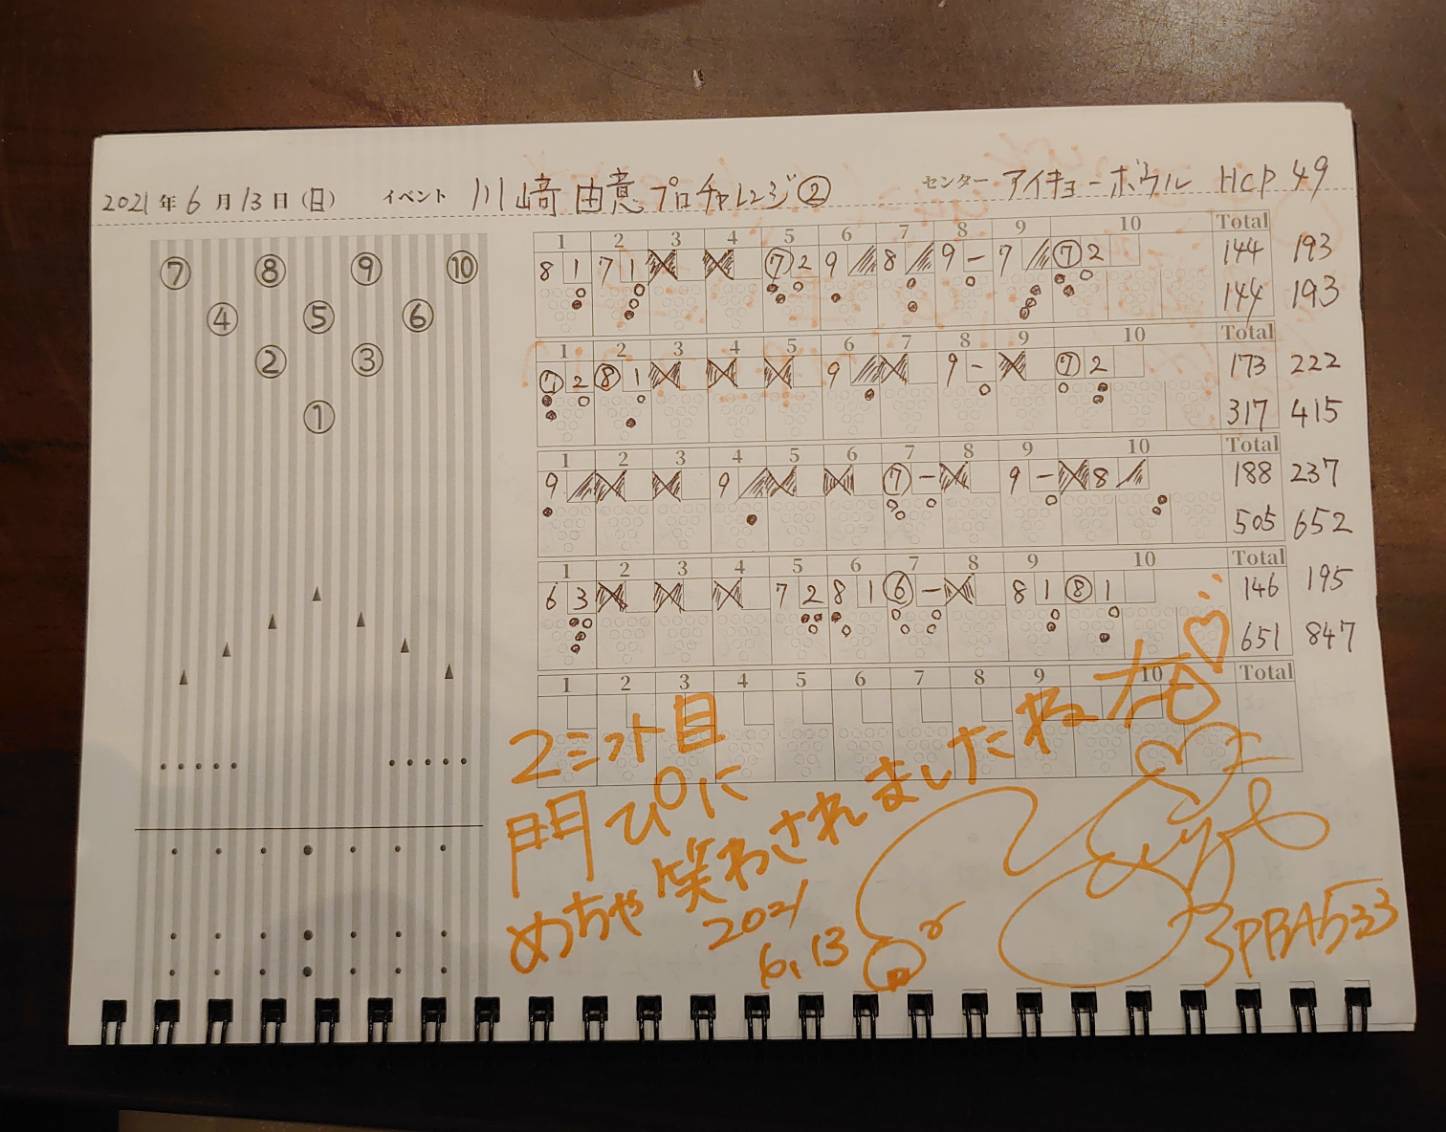 2021年 6月 13日(日) イベント 川﨑由意プロチャレンジ② センター アイキョーボウル HCP 49
⑦ ⑧ ⑨ ⑩
④ ⑤ ⑥
② ③
①
1 2 3 4 5 6 7 8 9 10 Total
8 1 7 1 ⑦ 2 9 8 9 - 7 ⑦ 2 144 193
144 193
1 2 3 4 5 6 7 8 9 10 Total
⑦ 2 ⑧ 1 9 9 - ⑦ 2 173 222
317 415
1 2 3 4 5 6 7 8 9 10 Total
9 9 ⑦ - 9 - 8 188 237
505 652
1 2 3 4 5 6 7 8 9 10 Total
6 3 7 2 8 1 ⑥ - 8 1 ⑧ 1 146 195
651 847
1 2 3 4 5 6 7 8 9 10 Total
2ミット目
門ぴに
めちゃ笑わされましたねな♡
2021
6.13
JPBA533